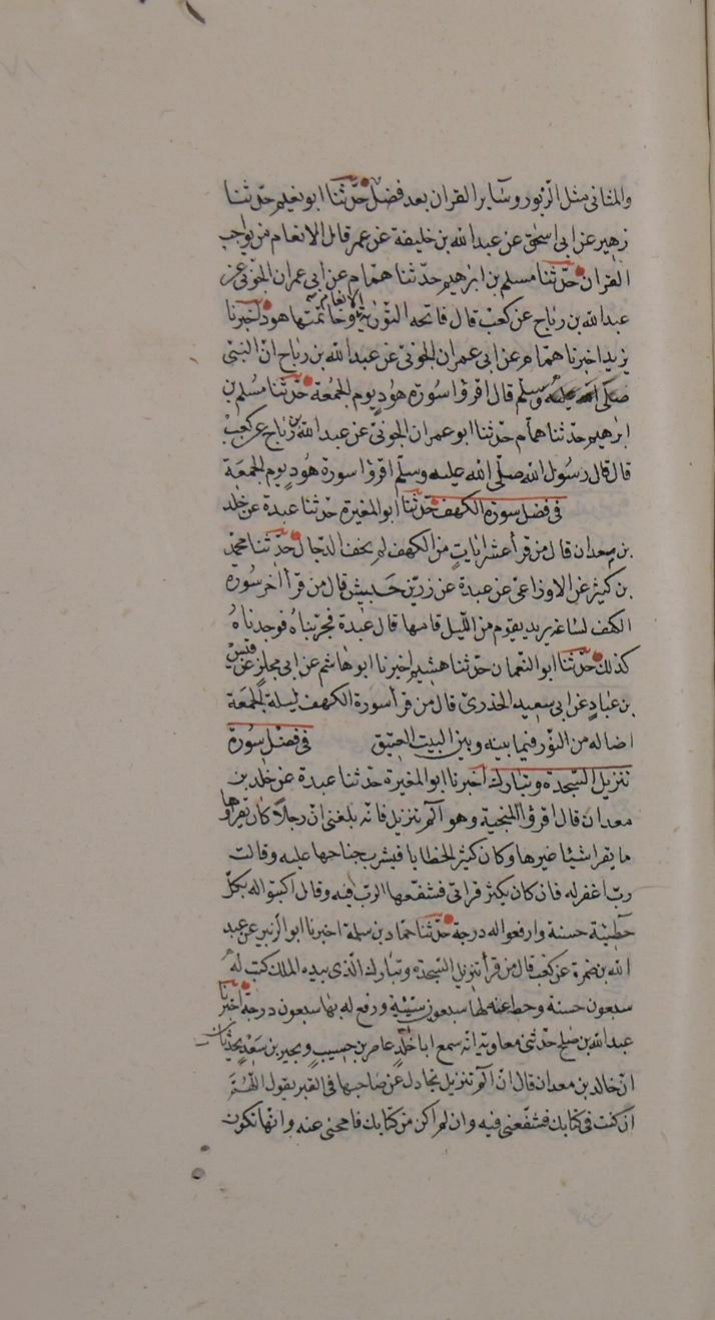 والمثانى مثل الزبور وسآير القران بعد فضل حدّثنا ابو نعيم حدّثنا
زهير عن ابى اسحٰق عن عبد الله بن خليفة عن عمر قال الانعام من نواجب
القران حدّثنا مسلم بن ابرٰهيم حدّثنا همّام عن ابى عمران الجونى عن
عبد الله بن رباح عن كعب قال فاتحه التورية الانعام وخاتمتها هود اخبرنا
يزيد اخبرنا همّام عن ابى عمران الجونى عن عبد الله بن رباح انّ النبىّ
صلى الله عليه وسلّم قال اقرؤا سورة هود يوم الجمعة حدّثنا مسلم بن
ابرٰهيم حدّثنا همّام حدّثنا ابو عمران الجونىّ عن عبد الله بن رباح عن كعب
قال قال رسول الله صلّى الله عليه وسلّم اقرؤا سورة هود يوم الجمعة
فى فضل سورة الكهف حدّثنا ابو المغيرة حدّثنا عبدة عن خلد
بن معدان قال من قرأ عشر ايات من الكهف لم يخف الدجال حدّثنا محمّد
بن كثير عن الاوزاعىّ عن عبدة عن زرّ بن حبيش قال من قرأ اخر سورة
الكهف لساعة يريد يقوم من الليل قامها قال عبدة فجرّبناه فوجدناه
كذلك حدّثنا ابو النعمان حدّثنا هشيم اخبرنا ابو هاشم عن ابى مجلز عن قيس
بن عباد عن ابى سعيد الخدرىّ قال من قرأ سورة الكهف ليلة الجمعة
اضا له من النور فيما بينه وبين البيت العتيق فى فضل سورة
تنزيل السّجدة وتبارك اخبرنا ابو المغيرة حدّثنا عبدة عن خلد بن
معدان قال اقرؤا المنجية وهو الٓم تنزيل فانّه بلغنى انّ رجلًا كان يقراها
ما يقرا شيئا غيرها وكان كثير الخطايا فنشرت جناحها عليه وقالت
ربّ اغفر له فان كان يكثر قراتى فشفّعها الربّ فيه وقال اكتبوا له بكلّ
خطيئة حسنة وارفعوا له درجة حدّثنا حمّاد بن سلمة اخبرنا ابو الزبير عن عبد
الله بن ضمرة عن كعب قال من قرأ تنزيل السّجدة وتبارك الّذى بيده الملك كتب له
سبعون حسنة وحط عنه بها سبعون سيّئة ورفع له بها سبعون درجة اخبرنا
عبد الله بن صلح حدّثنى معاوية انّه سمع ابا خلد عامر بن جشيب وبحير بن سعد يحدّثان
انّ خالد بن معدان قال انّ الٓم تنزيل تجادل عن صاحبها فى القبر يقول اللّهمّ
ان كنت فى كتابك فشفّعنى فيه وان لم اكن من كتابك فامحنى عنه وانّها تكون